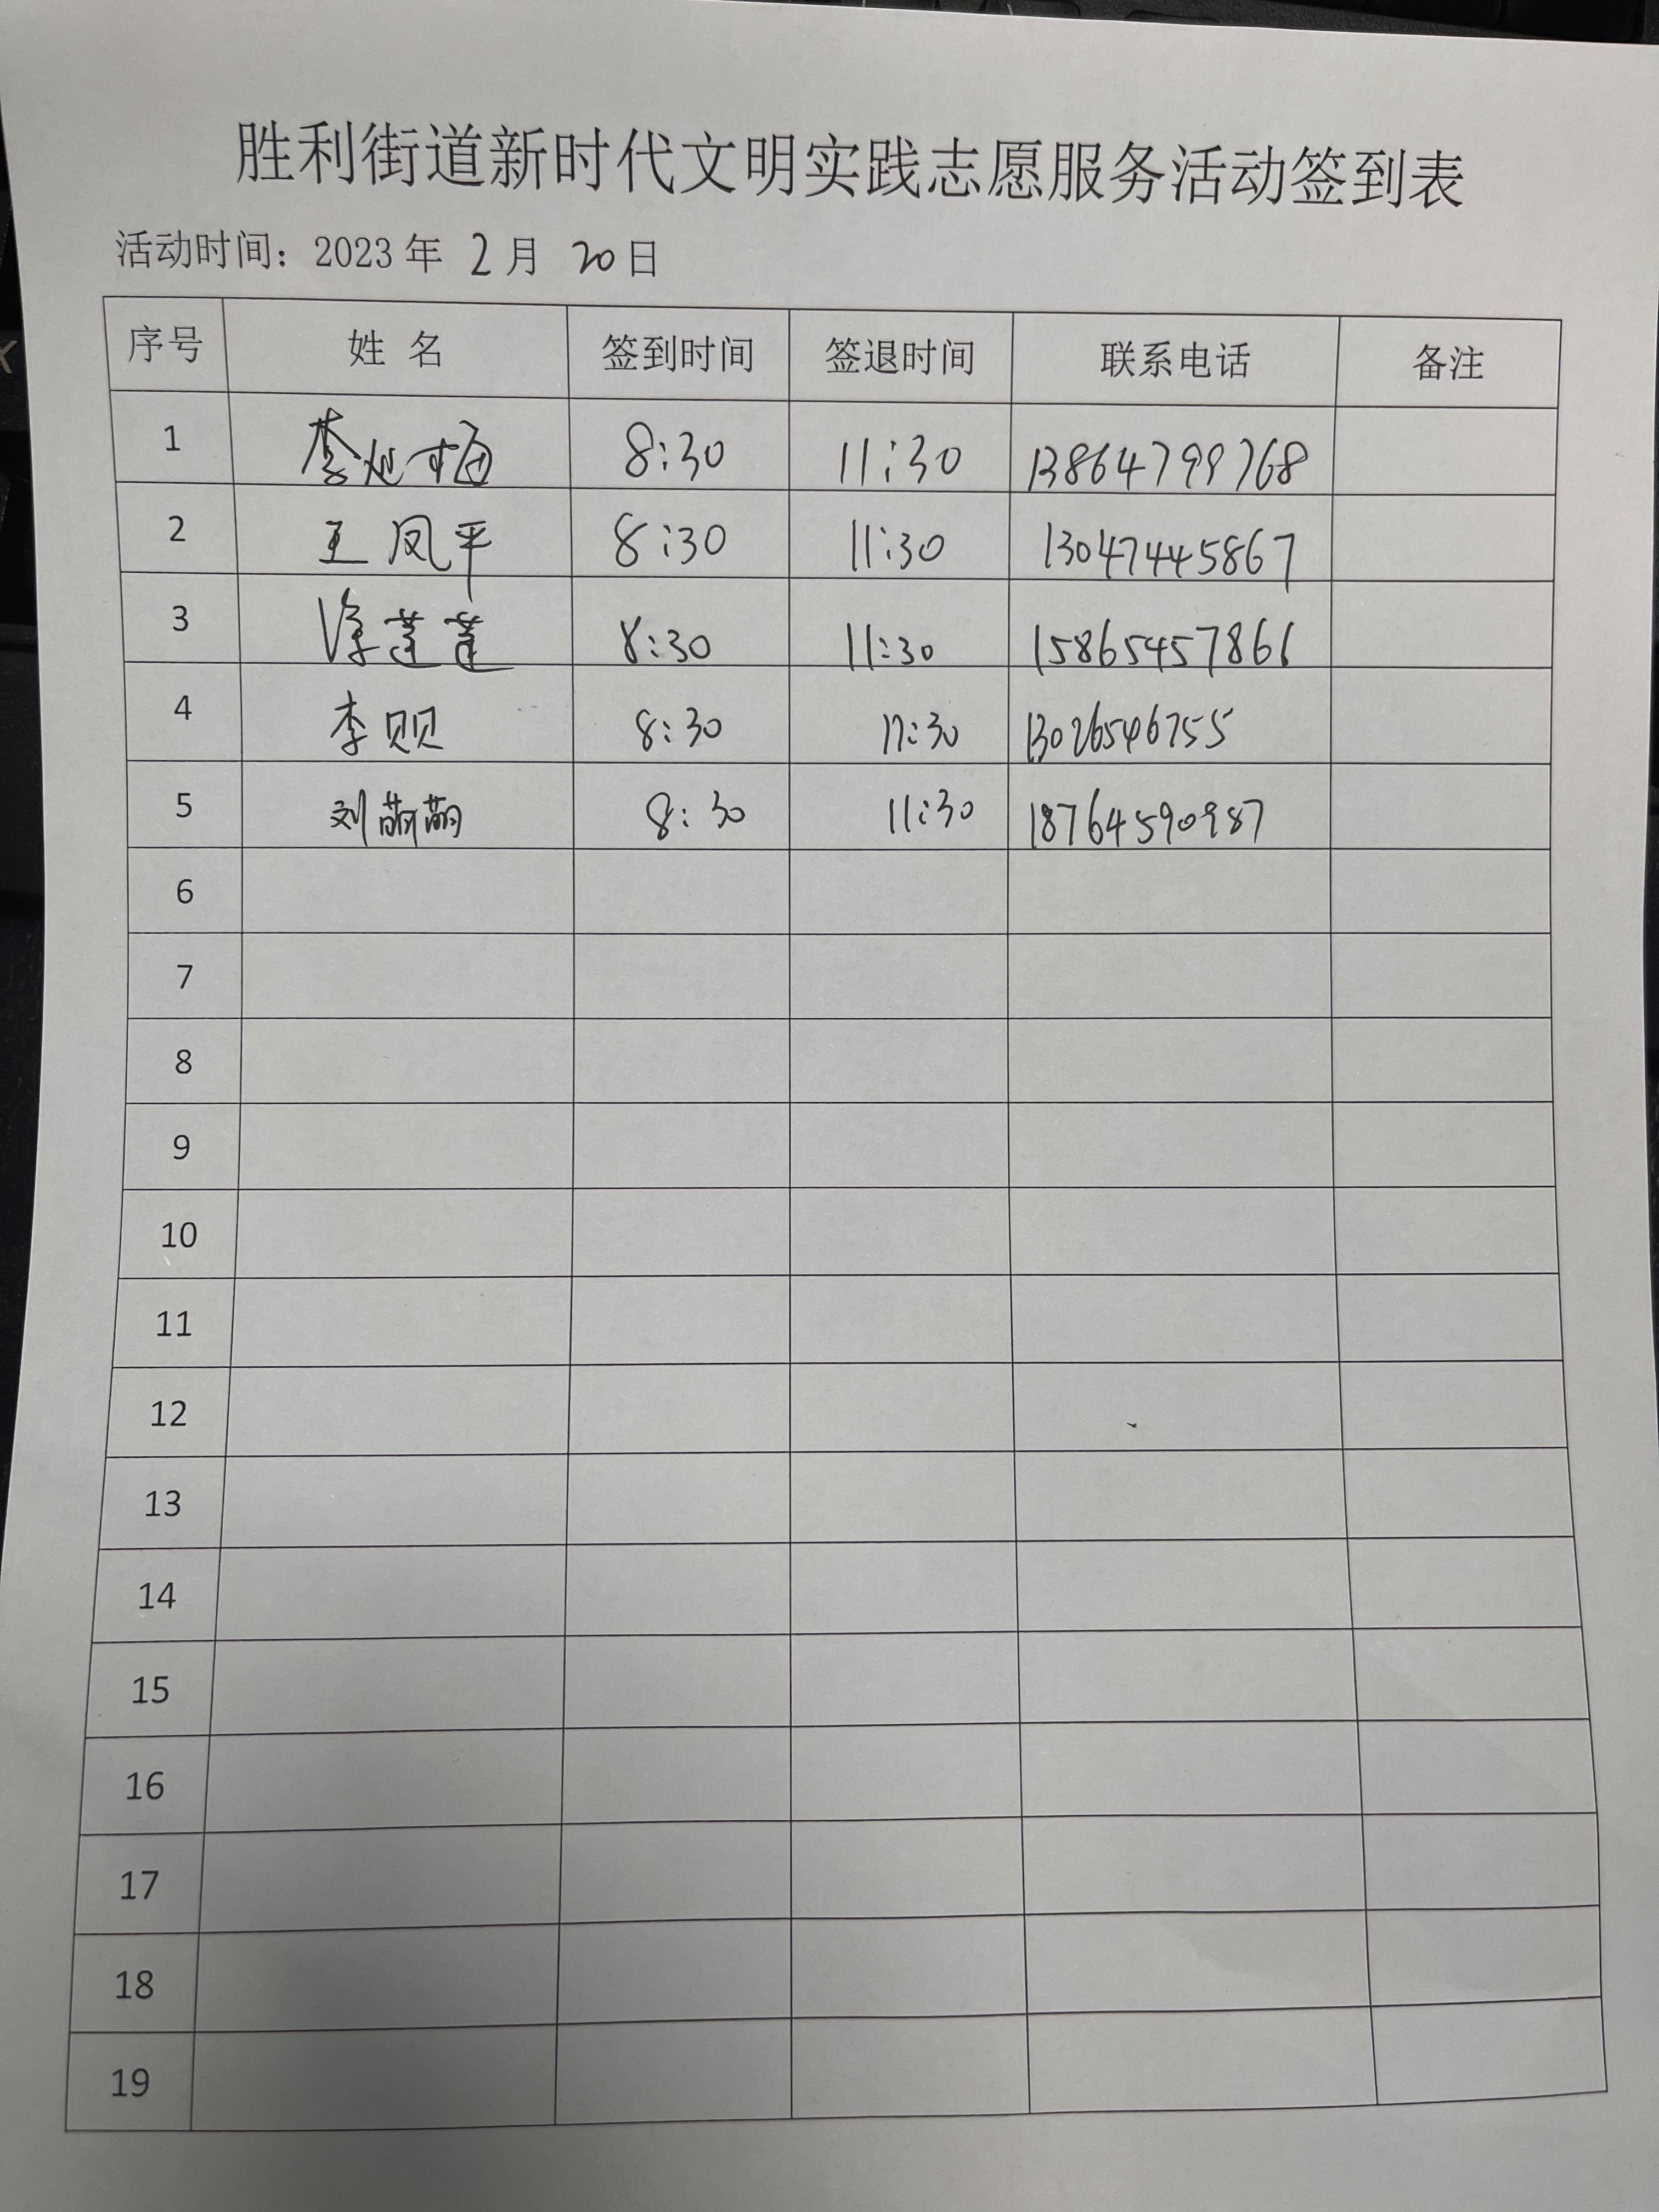 胜利街道新时代文明实践志愿服务活动签到表
活动时间：2023 年 2 月 20 日
序号 姓 名 签到时间 签退时间 联系电话 备注
1 李 梅 8:30 11:30 13864799768
2 王凤平 8:30 11:30 13047445867
3 徐莲莲 8:30 11:30 15865457866
4 李贝贝 8:30 11:30 13026546755
5 刘萌萌 8:30 11:30 18764590987
6
7
8
9
10
11
12
13
14
15
16
17
18
19